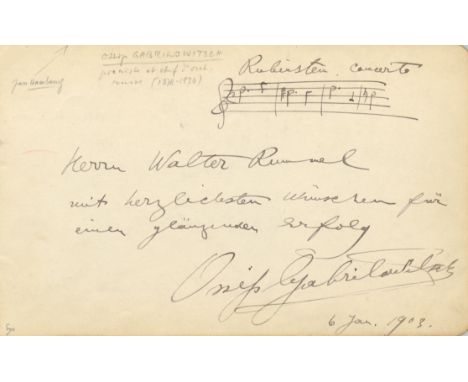 Ossip GABRILOWITSCH
pianiste et chef d'orch.
russe (1878-1936)
Jan Hambourg
Rubinstein concerto
Herrn Walter Rummel
mit herzlichsten Wünschen für
einen glänzenden Erfolg
Ossip Gabrilowitsch
6 Jan. 1903.